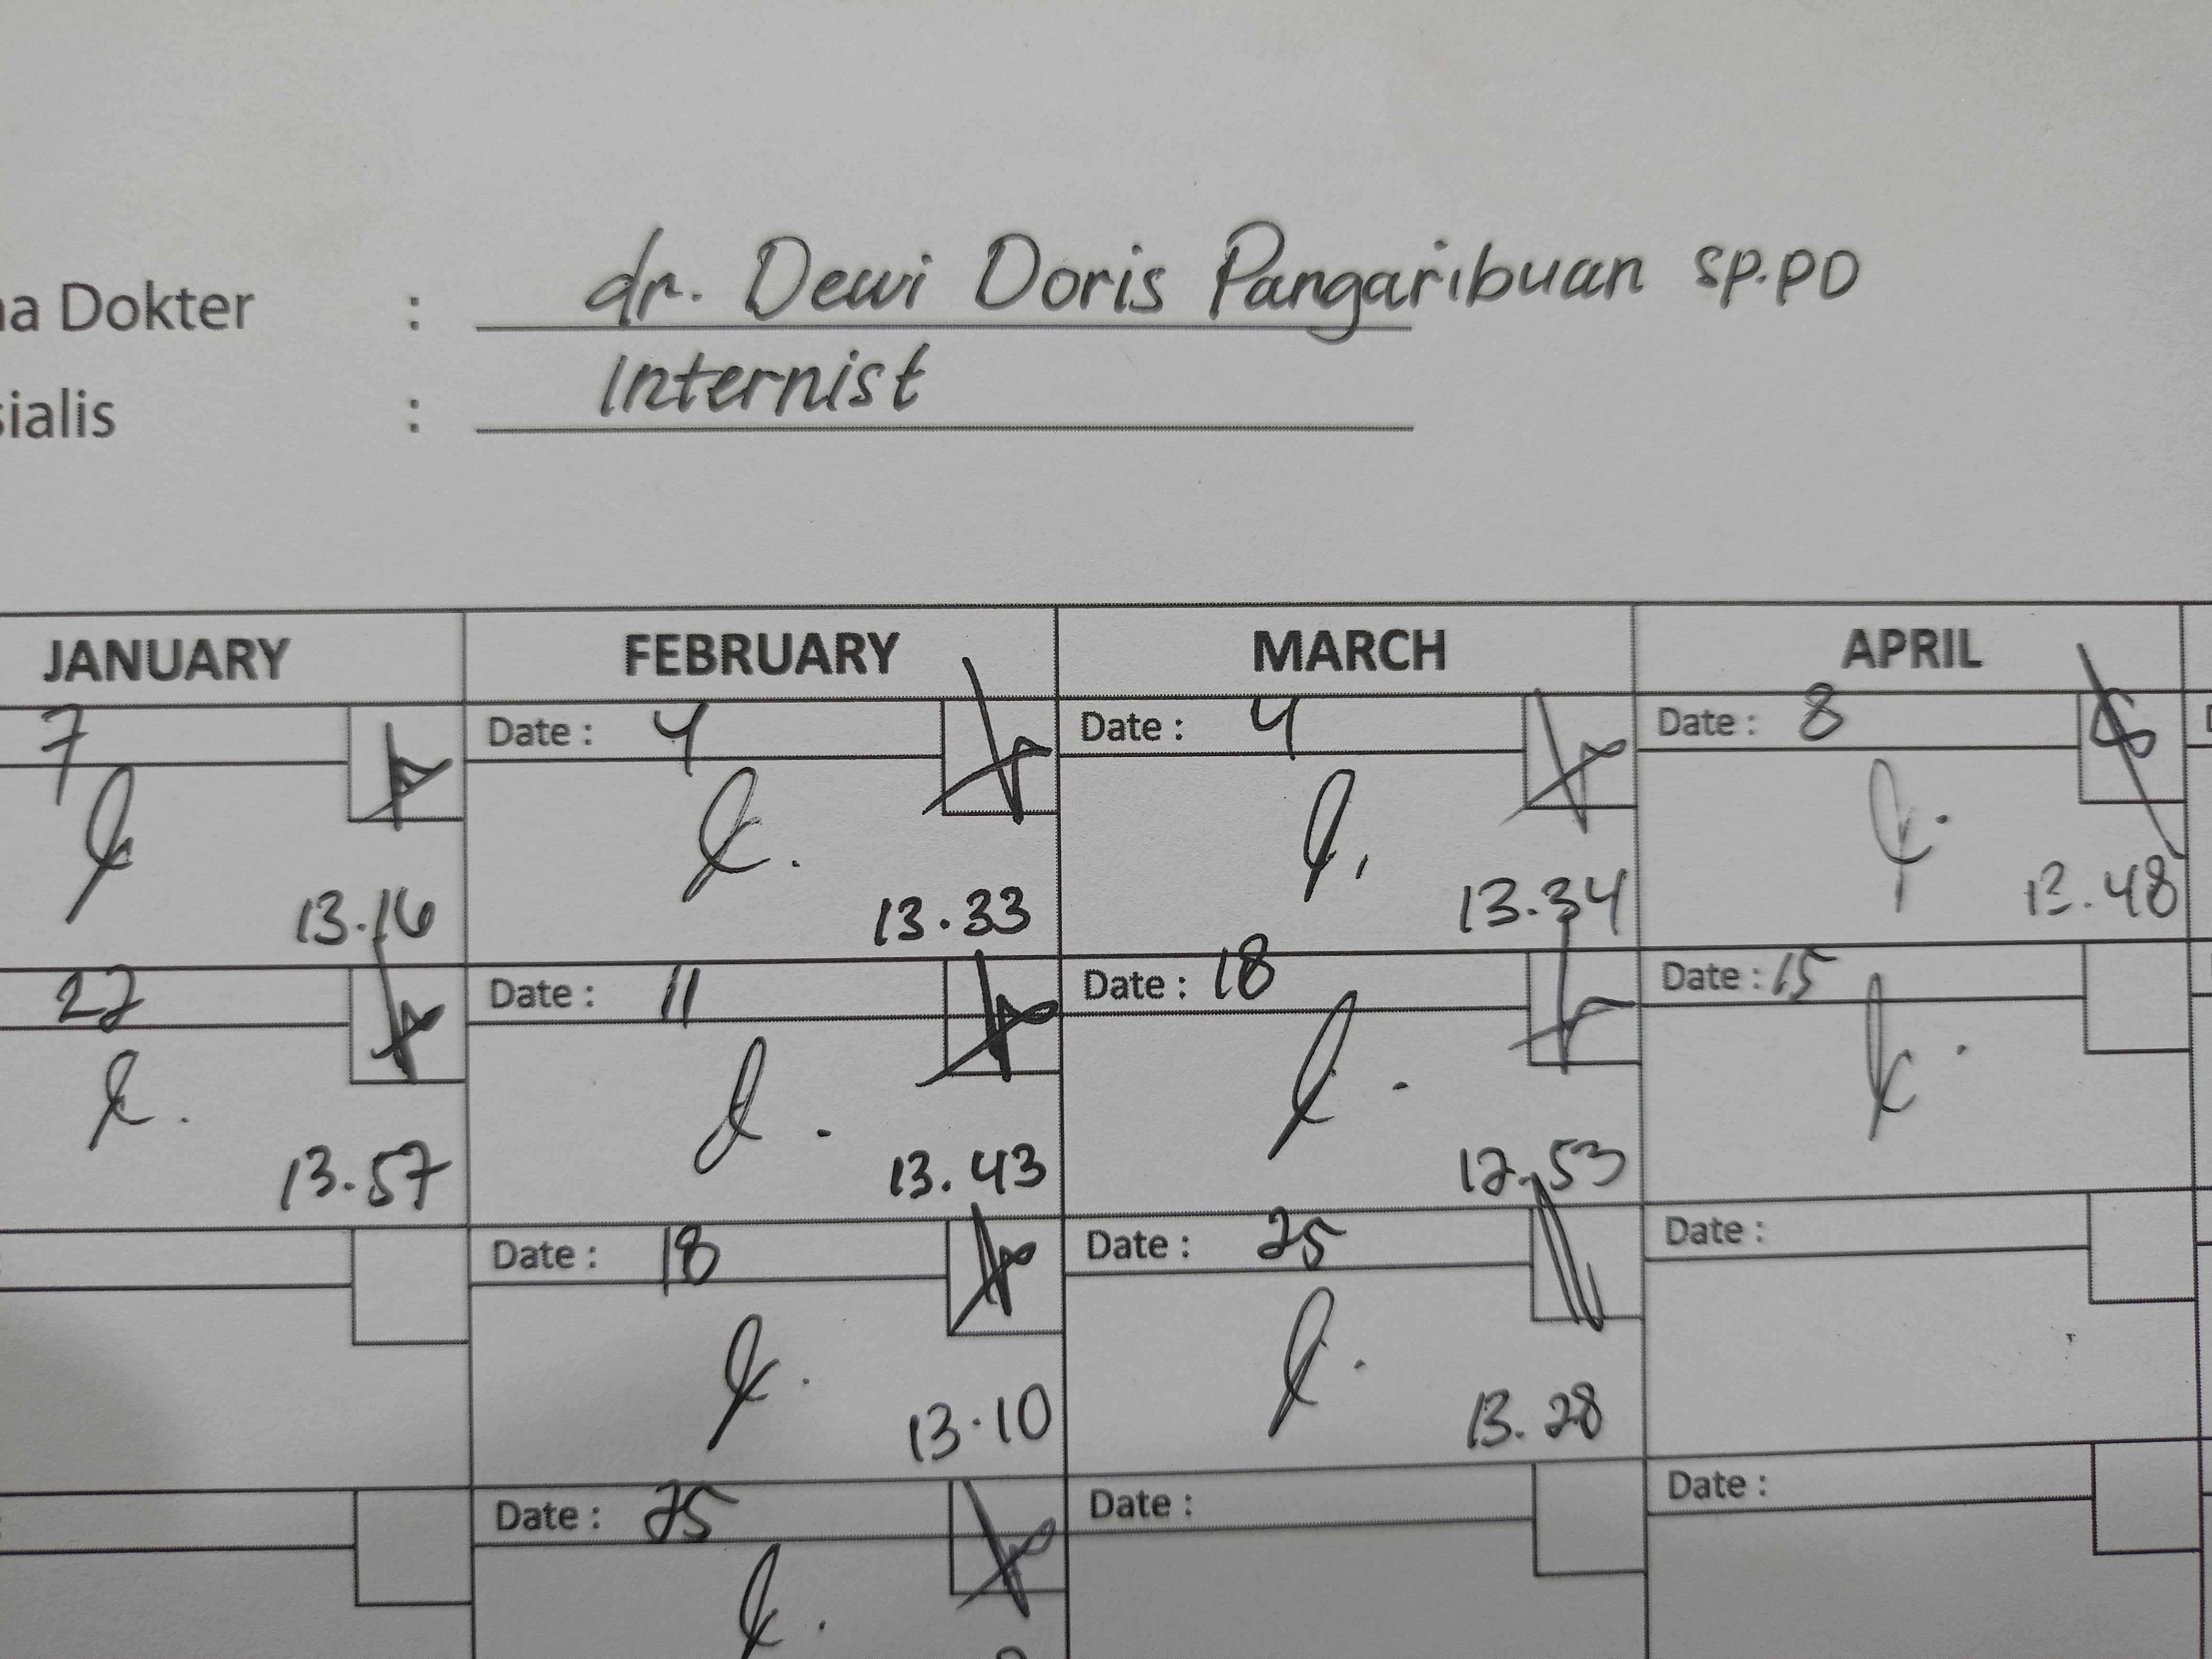 na Dokter : dr. Dewi Doris Pangaribuan Sp.PD
sialis : Internist
JANUARY FEBRUARY MARCH APRIL
7 Date : 4 Date : 4 Date : 8
13.16 13.33 13.34 13.48
22 Date : 11 Date : 18 Date : 15
13.57 13.43 12.53
Date : 18 Date : 25 Date :
13.10 13.28
Date : 25 Date : Date :